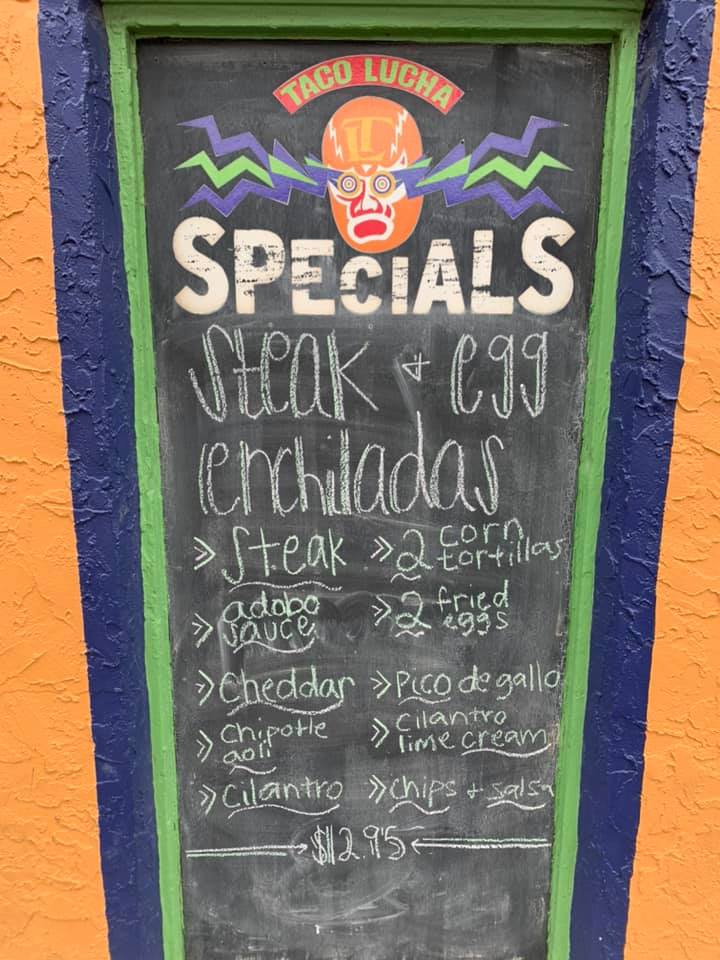 TACO LUCHA
LT
SPECIALS
Steak + egg
enchiladas
» Steak
» adobo
sauce
» Cheddar
» Chipotle
aoli
» Cilantro
» 2 corn
tortillas
» 2 fried
eggs
» Pico de gallo
» Cilantro
lime cream
» chips + salsa
$12.95